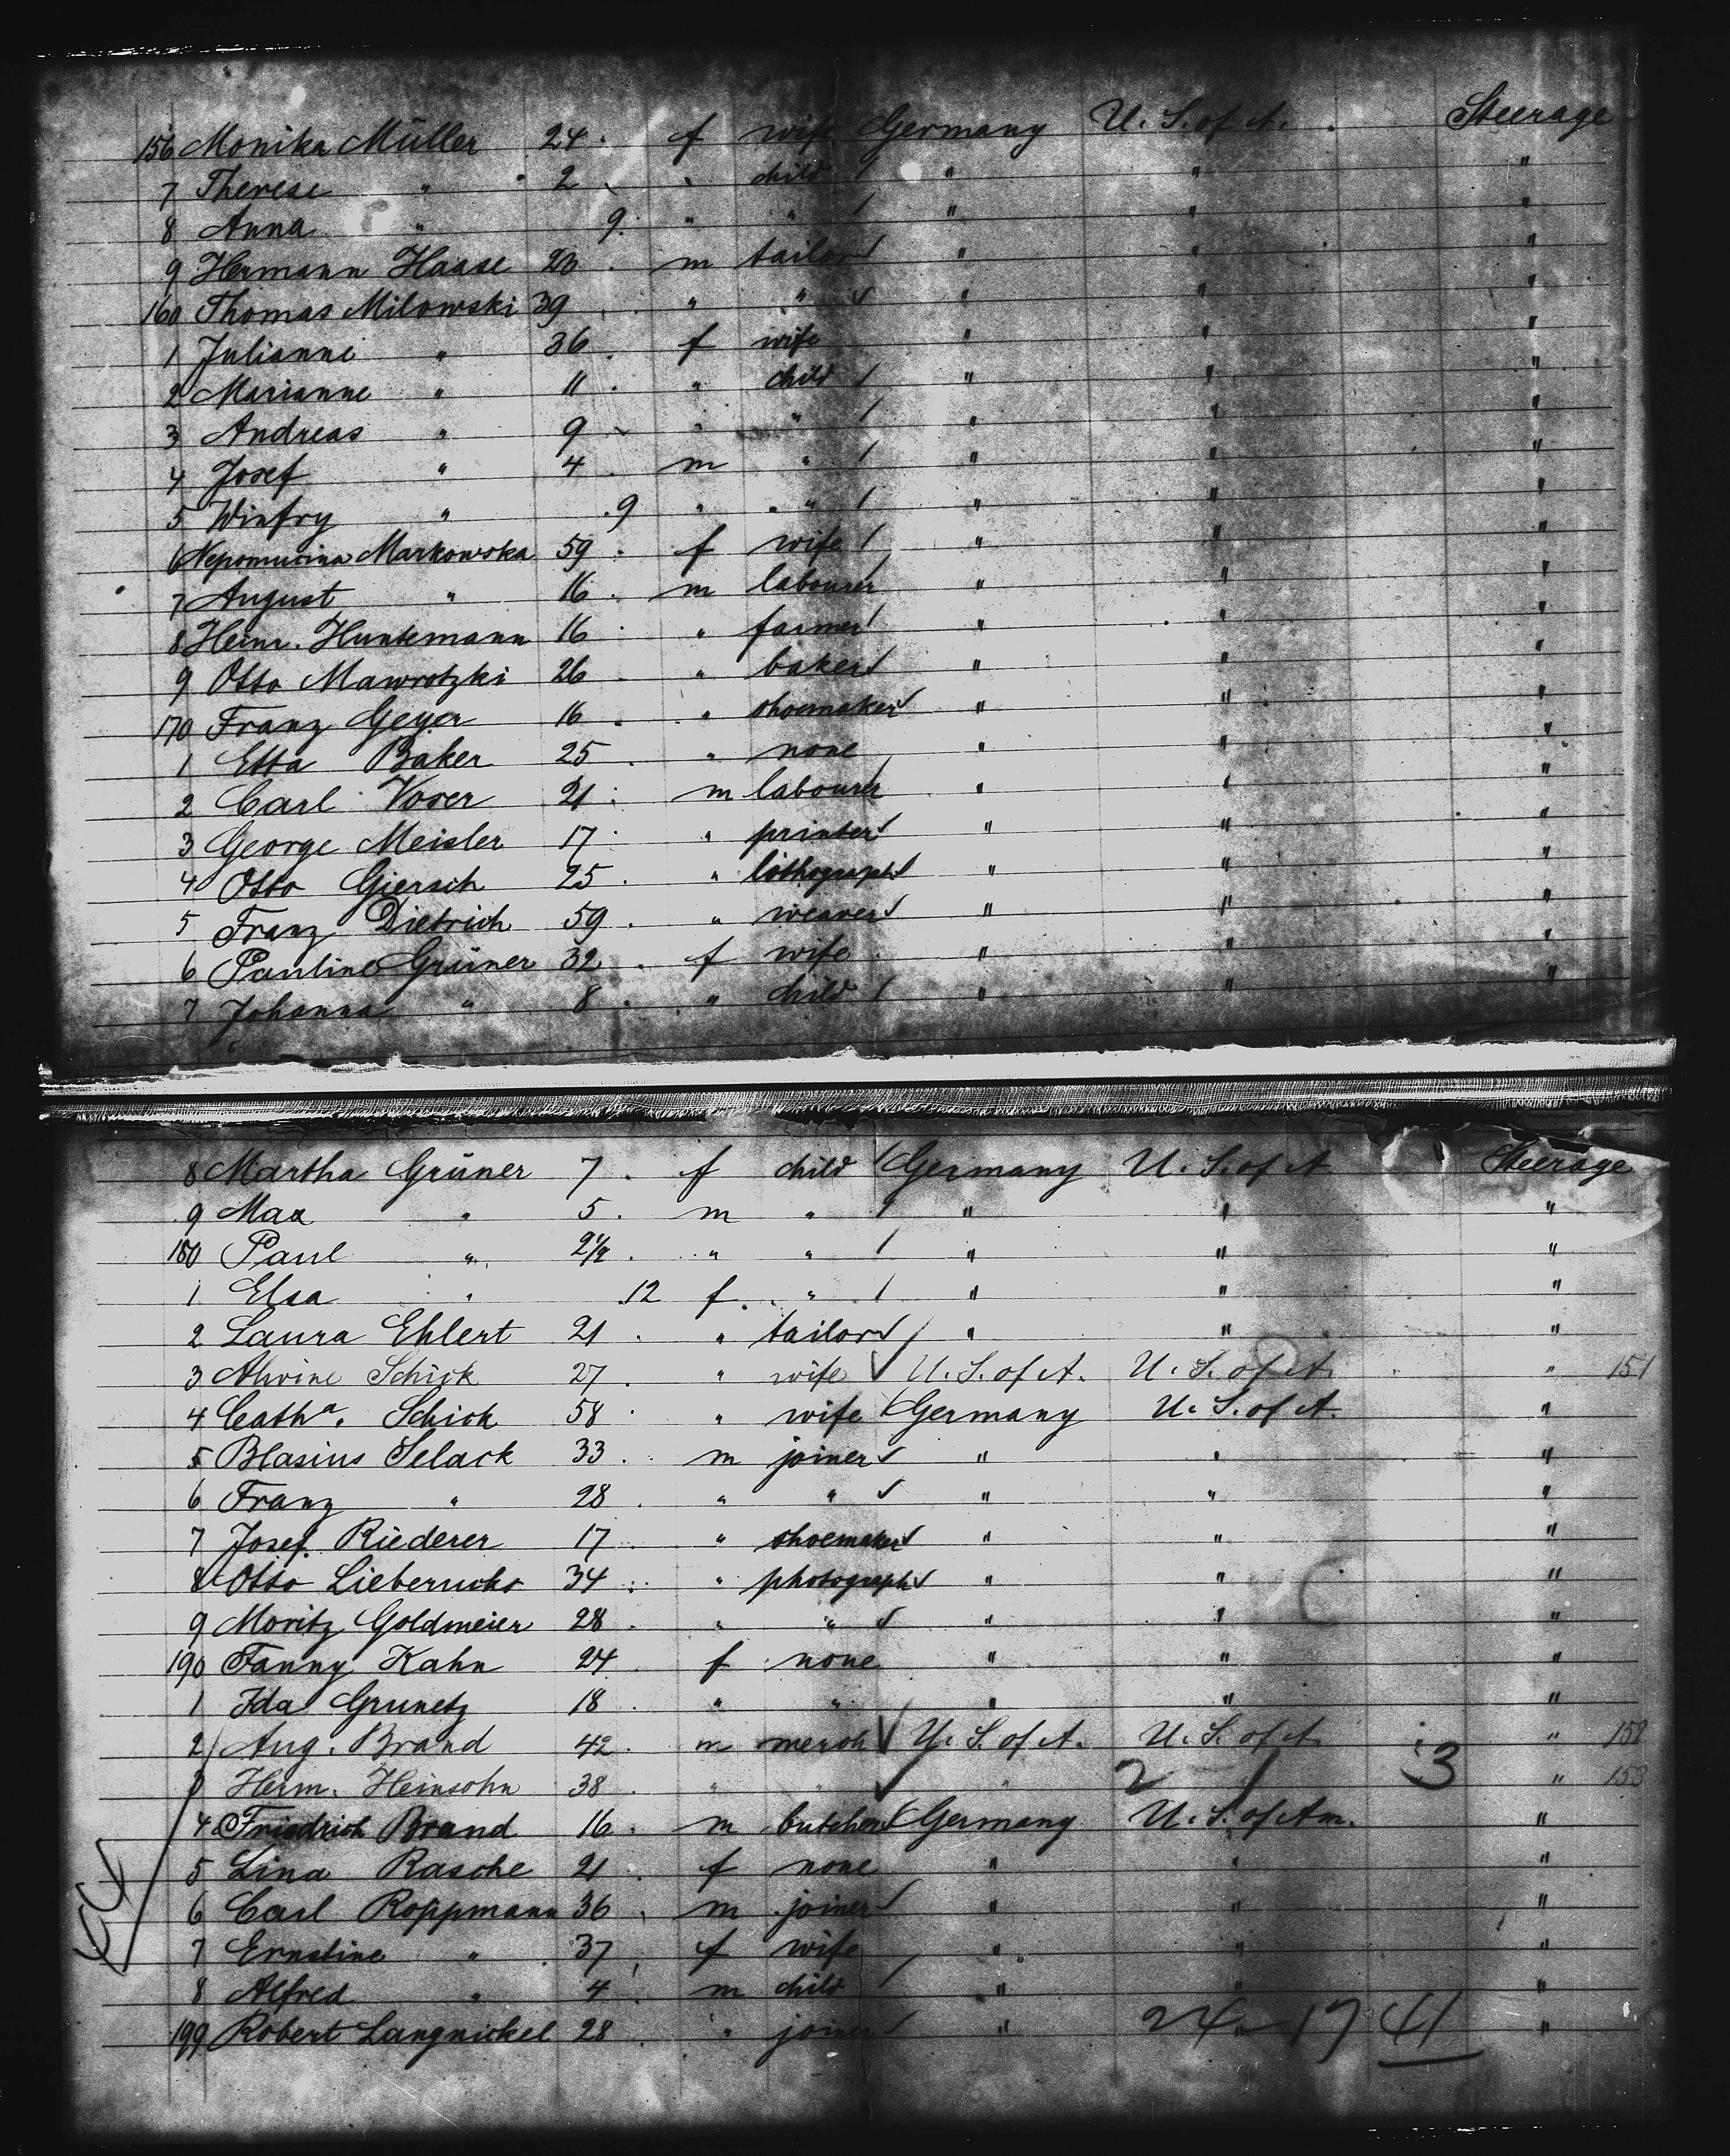 156 Monika Müller 24 f wife Germany U. S. of A. Steerage
7 Therese " 2 " child " " "
8 Anna " 9 " " " " "
9 Hermann Haase 20 m tailor " " "
160 Thomas Milowski 39 " " " " "
1 Julianne " 36 f wife " " "
2 Marianne " 11 " child " " "
3 Andreas " 9 " " " " "
4 Josef " 4 m " " " "
5 Winfry " 9 " " " " "
6 Nepomucina Markowska 59 f wife " " "
7 August " 16 m labourer " " "
8 Heinr. Huntemann 16 " farmer " " "
9 Otto Mawrotzki 26 " baker " " "
170 Franz Geyer 16 " shoemaker " " "
1 Etta Baker 25 " none " " "
2 Carl Voser 21 m labourer " " "
3 George Meisler 17 " printer " " "
4 Otto Giersch 25 " lithograph " " "
5 Franz Dietrich 59 " weaver " " "
6 Pauline Grüner 32 f wife " " "
7 Johanna " 8 " child " " "
8 Martha Grüner 7 f child Germany U. S. of A Steerage
9 Max " 5 m " " " "
180 Paul " 2½ " " " " "
1 Elsa " 12 f " " " "
2 Laura Ehlert 21 " tailor " " "
3 Alwine Schick 27 " wife U. S. of A. U. S. of A. " 151
4 Catha. Schick 58 " wife Germany U. S. of A. "
5 Blasius Selack 33 m joiner " " "
6 Franz " 28 " " " " "
7 Josef Riederer 17 " shoemaker " " "
8 Otto 34 " photograph " " "
9 Moritz Goldmeier 28 " " " " "
190 Fanny Kahn 24 f none " " "
1 Ida Grunetz 18 " " " " "
2 Aug. Brand 42 m merch U. S. of A. U. S. of A. " 152
3 Herm. Heinsohn 38 " " " 2 1 3 " 153
4 Friedrich Brand 16 m butcher Germany U. S. of Am. "
5 Lina Rasche 21 f none " " "
6 Carl Roppmann 36 m joiner " " "
7 Ernstine " 37 f wife " " "
8 Alfred " 4 m child " " "
199 Robert Langnickel 28 " joiner " 24 17 41 "